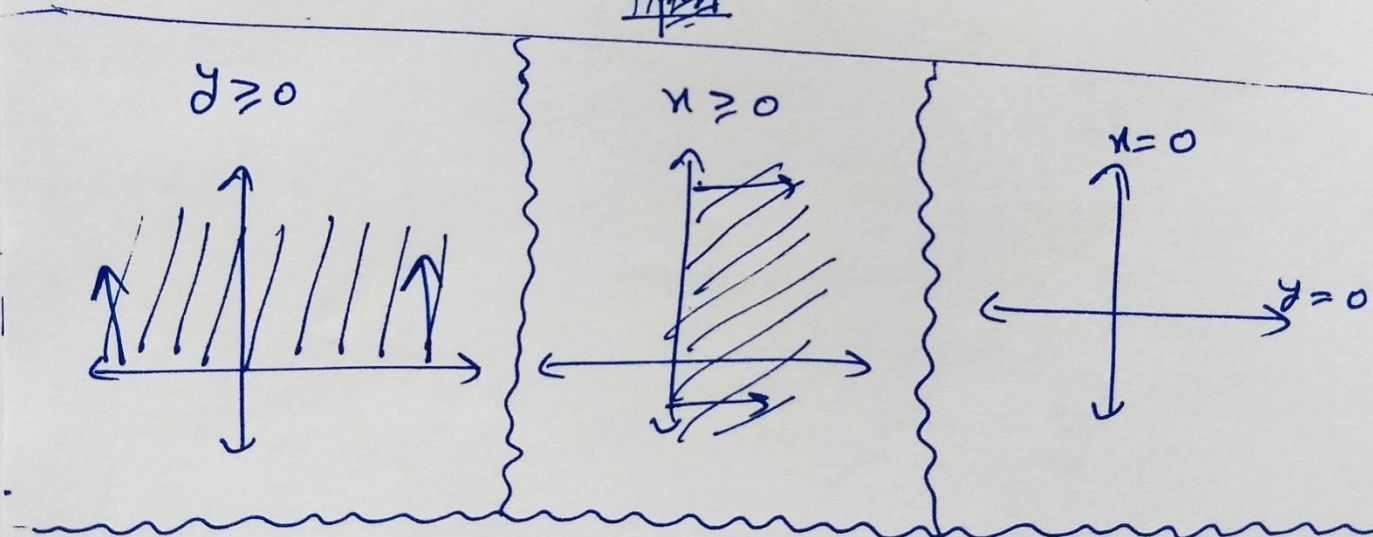 y ≥ 0
x ≥ 0
x = 0
y = 0